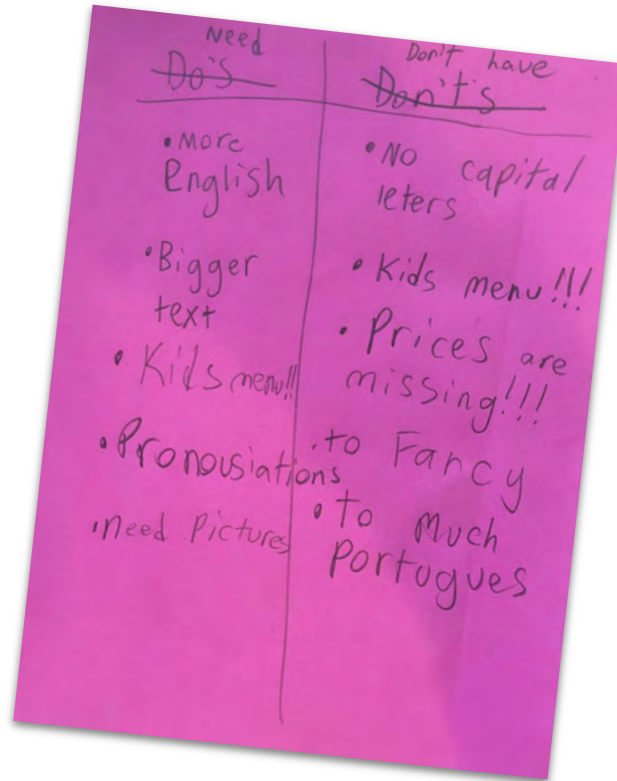 Need
Do's
• More
English
• Bigger
text
• Kids menu!!
• Pronousiations
• need Pictures
Don't have
Don't s
• No capital
leters
• Kids menu!!!
• Prices are
missing!!!
• to Fancy
• To Much
Portogues